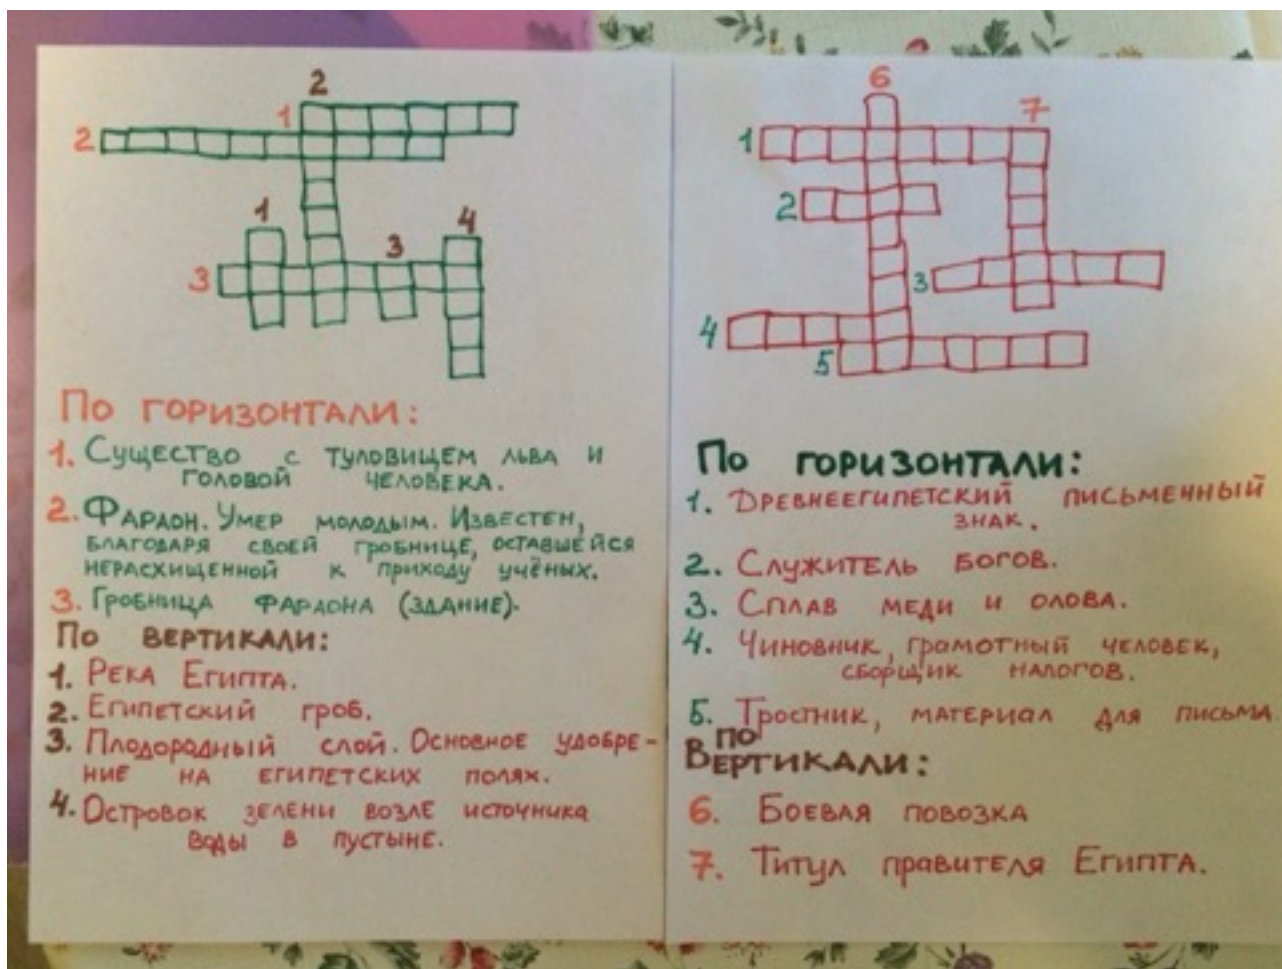 2
1
2
1
4
3
3
По горизонтали:
1. Существо с туловищем льва и
головой человека.
2. Фараон. Умер молодым. Известен,
благодаря своей гробнице, оставшейся
нерасхищенной к приходу учёных.
3. Гробница фараона (здание).
По вертикали:
1. Река Египта.
2. Египетский гроб.
3. Плодородный слой. Основное удобре-
ние на египетских полях.
4. Островок зелени возле источника
воды в пустыне.
6
7
1
2
3
4
5
По горизонтали:
1. Древнеегипетский письменный
знак.
2. Служитель богов.
3. Сплав меди и олова.
4. Чиновник, грамотный человек,
сборщик налогов.
5. Тростник, материал для письма
по
Вертикали:
6. Боевая повозка
7. Титул правителя Египта.